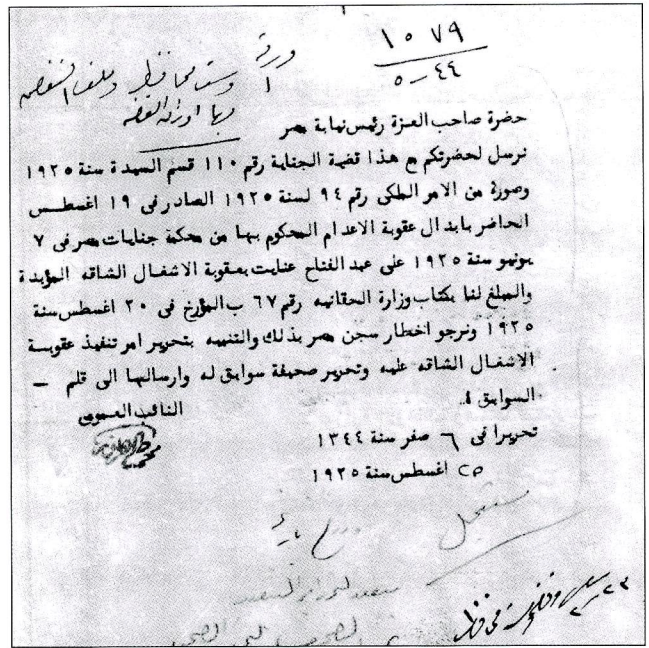 ١٠٧٩
٤٤ــ٥
ورقة
ا
وست محافظ وملف الشخص
بها اوراق القضية
حضرة صاحب العزة رئيس نيابة مصر
نرسل لحضرتكم مع هذا قضية الجناية رقم ١١٠ قسم السيدة سنة ١٩٢٥
وصورة من الامر الملكى رقم ٩٤ لسنة ١٩٢٥ الصادر فى ١٩ اغسطس
الحاضر بابدال عقوبة الاعدام المحكوم بها من محكمة جنايات مصر فى ٧
يونيو سنة ١٩٢٥ على عبد الفتاح عنايت بعقوبة الاشغال الشاقه المؤبدة
والمبلغ لنا بكتاب وزارة الحقانيه رقم ٦٧ ب المؤرخ فى ٢٠ اغسطس سنة
١٩٢٥ ونرجو اخطار سجن مصر بذلك والتنبيه بتحرير امر تنفيذ عقوبة
الاشغال الشاقه عليه وتحرير صحيفة سوابق له وارسالها الى قلم —
السوابق ٤
النائب العمومى
تحريرا فى ٦ صفر سنة ١٣٤٤
٢٥ اغسطس سنة ١٩٢٥
مستعجل